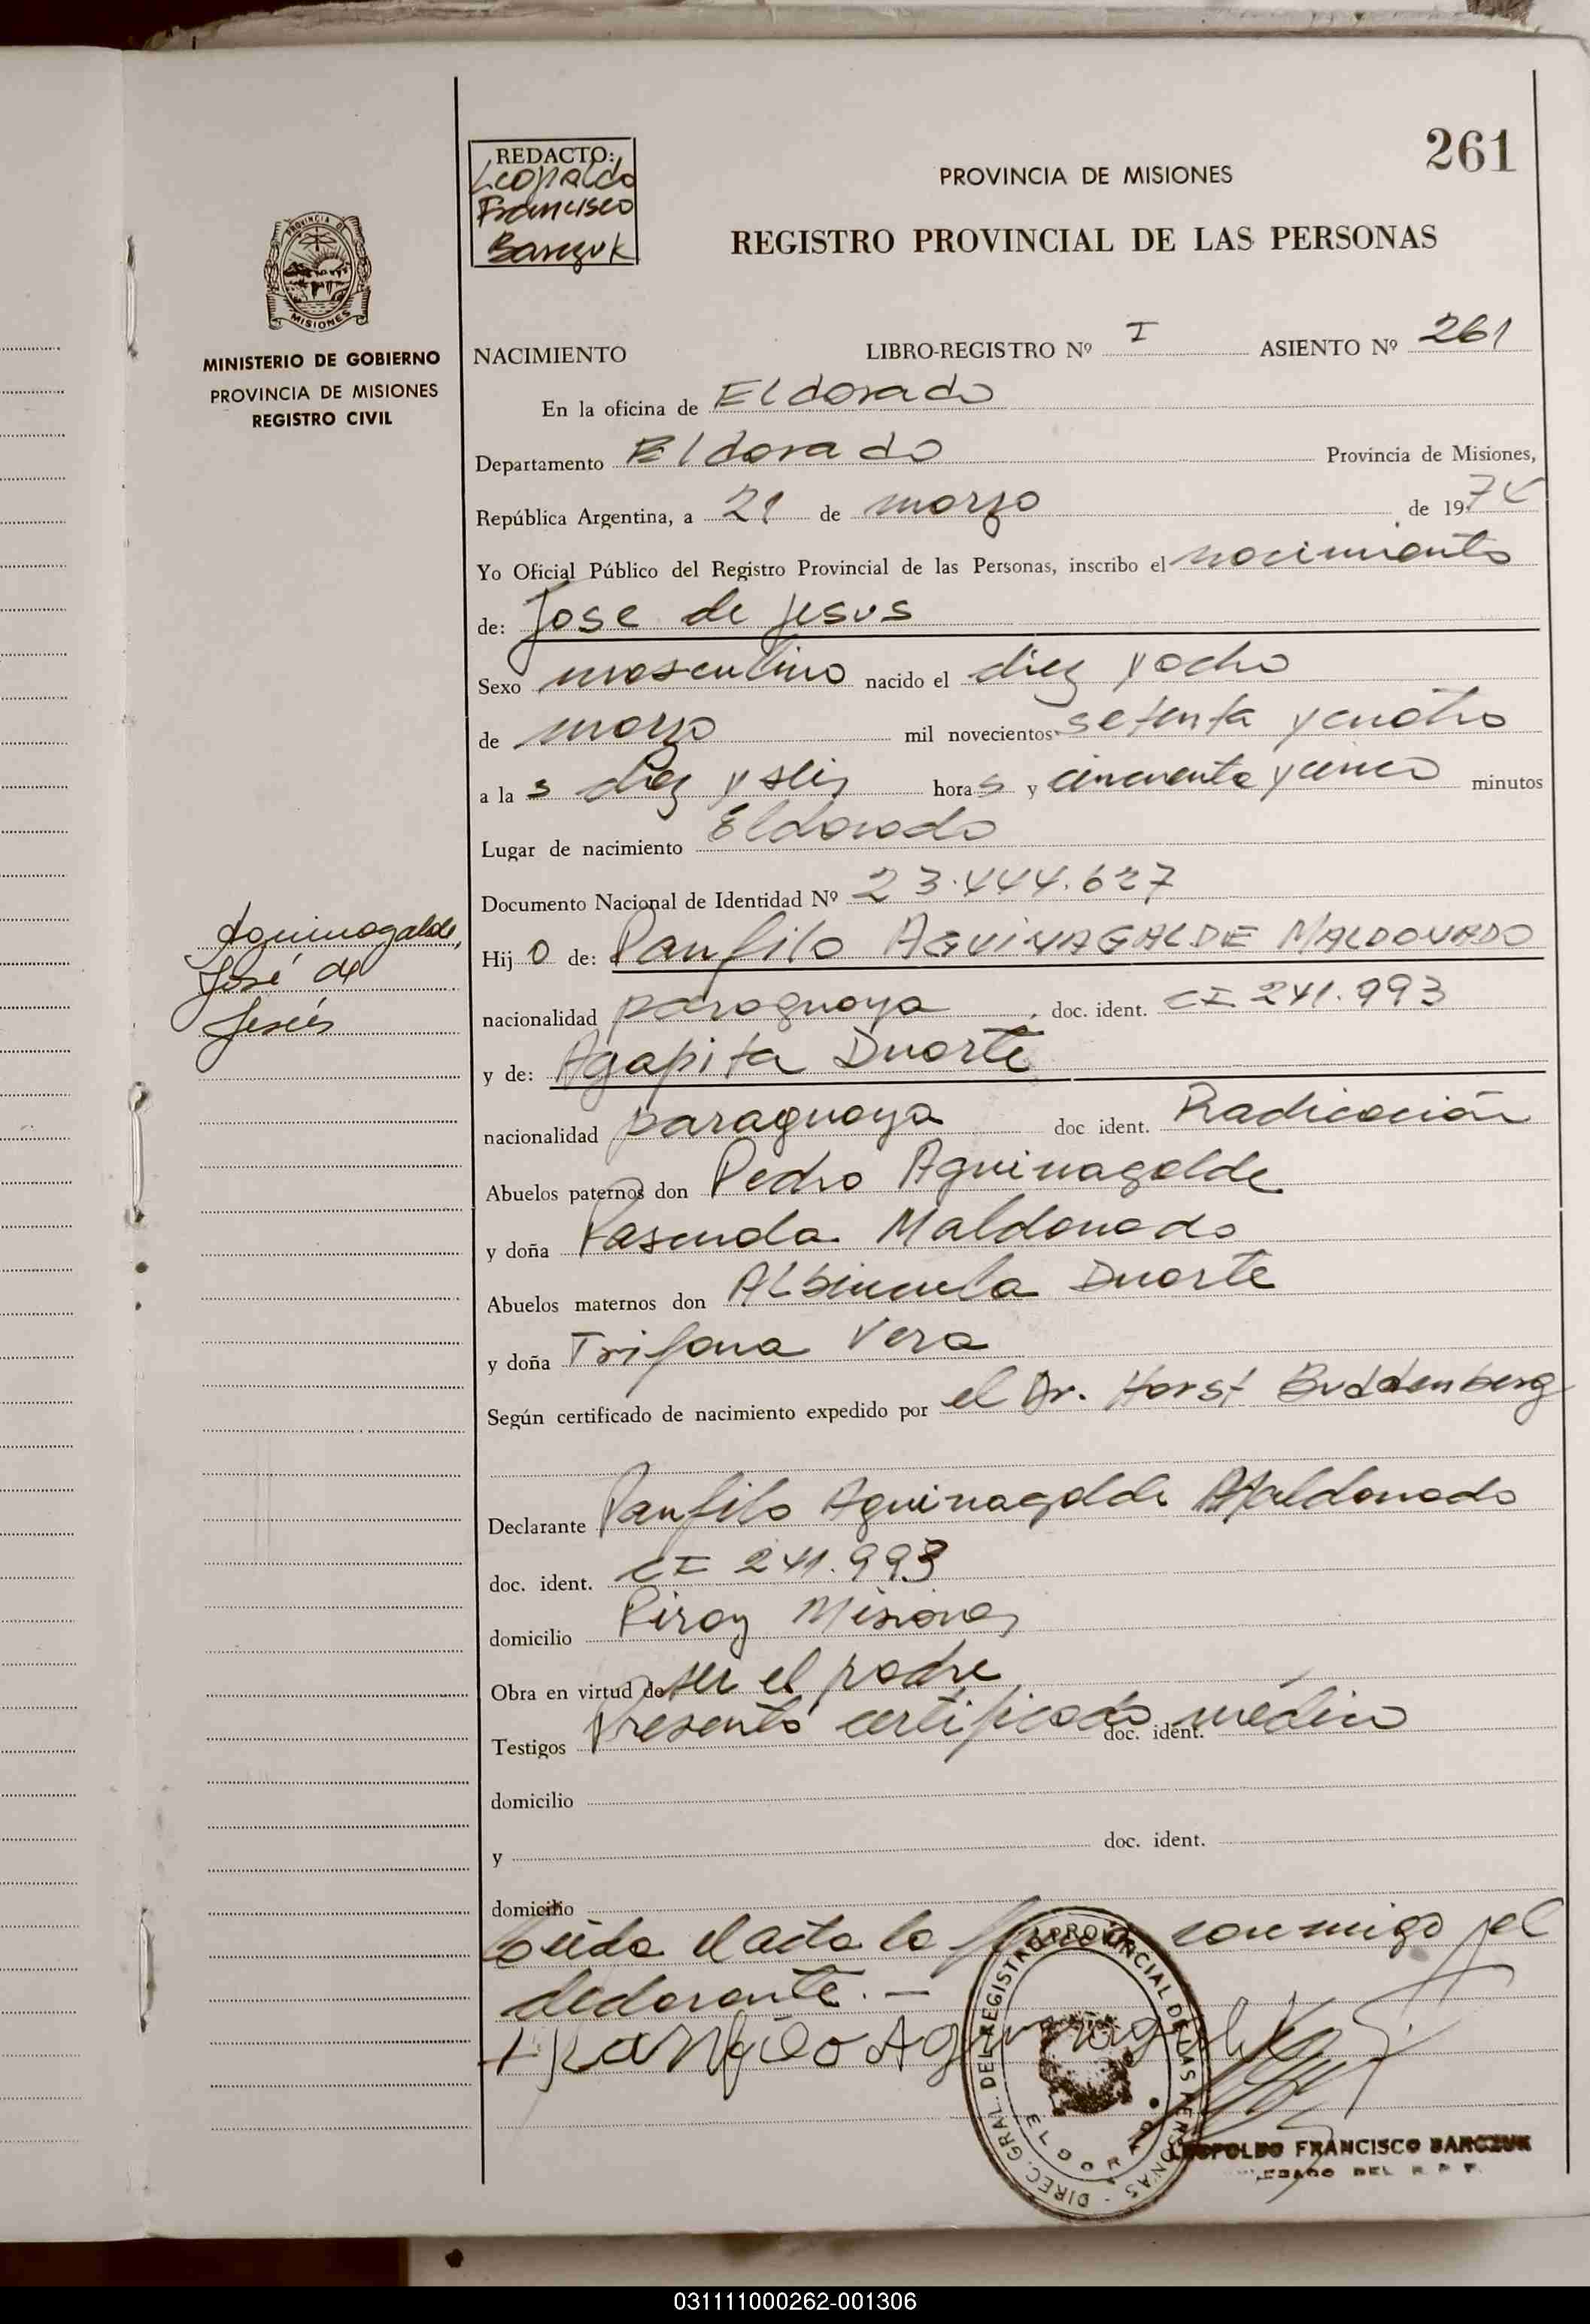 261
REDACTO:
Leopoldo
Francisco
Barczuk
PROVINCIA DE MISIONES
REGISTRO PROVINCIAL DE LAS PERSONAS
PROVINCIA DE
MISIONES
MINISTERIO DE GOBIERNO
PROVINCIA DE MISIONES
REGISTRO CIVIL
NACIMIENTO LIBRO-REGISTRO Nº I ASIENTO Nº 261
En la oficina de Eldorado
Departamento Eldorado Provincia de Misiones,
República Argentina, a 21 de marzo de 1974
Yo Oficial Público del Registro Provincial de las Personas, inscribo el nacimiento
de: Jose de Jesus
Sexo masculino nacido el diez y ocho
de marzo mil novecientos setenta y cuatro
a las diez y seis horas y cincuenta y cinco minutos
Lugar de nacimiento Eldorado
Documento Nacional de Identidad Nº 23.444.627
Aguinagalde,
José de
Jesús
Hijo de: Panfilo AGUINAGALDE MALDONADO
nacionalidad paraguaya, doc. ident. CI 241.993
y de: Agapita Duarte
nacionalidad paraguaya doc ident. Radicación
Abuelos paternos don Pedro Aguinagalde
y doña Maldonado
Abuelos maternos don Duarte
y doña Trifona Vera
Según certificado de nacimiento expedido por el Dr. Horst Buddenberg
Declarante Panfilo Aguinagalde Maldonado
doc. ident. CI 241.993
domicilio Piray Misiones
Obra en virtud de ser el padre
Testigos Presentó certificado médico doc. ident.
domicilio
y doc. ident.
domicilio
Leida el acta la conmigo el
declarante.-
Panfilo Aguinagalde
DIREC. GRAL. DEL REGISTRO PROVINCIAL DE LAS PERSONAS
ELDORADO
LEOPOLDO FRANCISCO BARCZUK
DEL R. P. P.
031111000262-001306